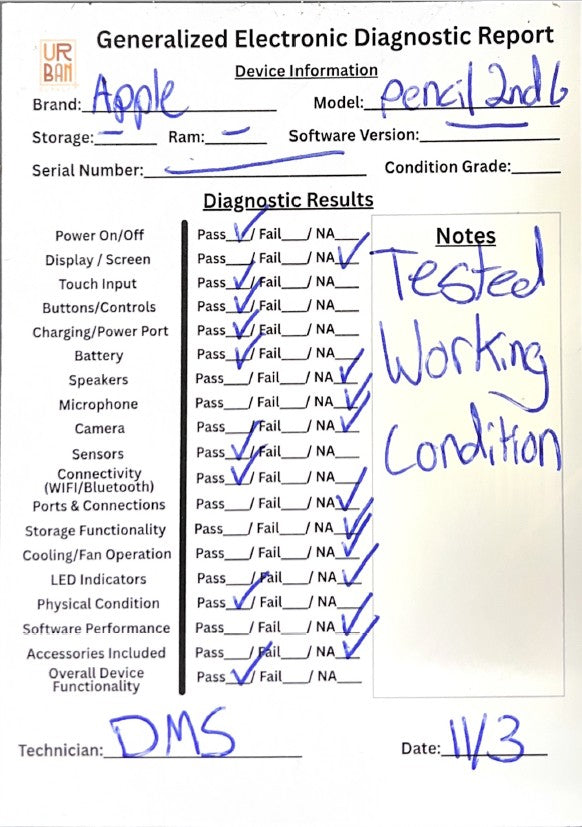 UR
BAN
Generalized Electronic Diagnostic Report
Device Information
Brand: Apple Model: Pencil 2nd G
Storage: — Ram: — Software Version: —
Serial Number: — Condition Grade:
Diagnostic Results
Power On/Off Pass ✓/ Fail___/ NA___
Display / Screen Pass___/ Fail___/ NA ✓
Touch Input Pass ✓/ Fail___/ NA___
Buttons/Controls Pass ✓/ Fail___/ NA___
Charging/Power Port Pass ✓/ Fail___/ NA___
Battery Pass ✓/ Fail___/ NA___
Speakers Pass___/ Fail___/ NA ✓
Microphone Pass___/ Fail___/ NA ✓
Camera Pass___/ Fail___/ NA ✓
Sensors Pass ✓/ Fail___/ NA___
Connectivity
(WIFI/Bluetooth) Pass ✓/ Fail___/ NA___
Ports & Connections Pass___/ Fail___/ NA ✓
Storage Functionality Pass___/ Fail___/ NA ✓
Cooling/Fan Operation Pass___/ Fail___/ NA ✓
LED Indicators Pass___/ Fail___/ NA ✓
Physical Condition Pass ✓/ Fail___/ NA___
Software Performance Pass___/ Fail___/ NA ✓
Accessories Included Pass___/ Fail___/ NA ✓
Overall Device
Functionality Pass ✓/ Fail___/ NA___
Notes
Tested
Working
Condition
Technician: DMS Date: 11/3